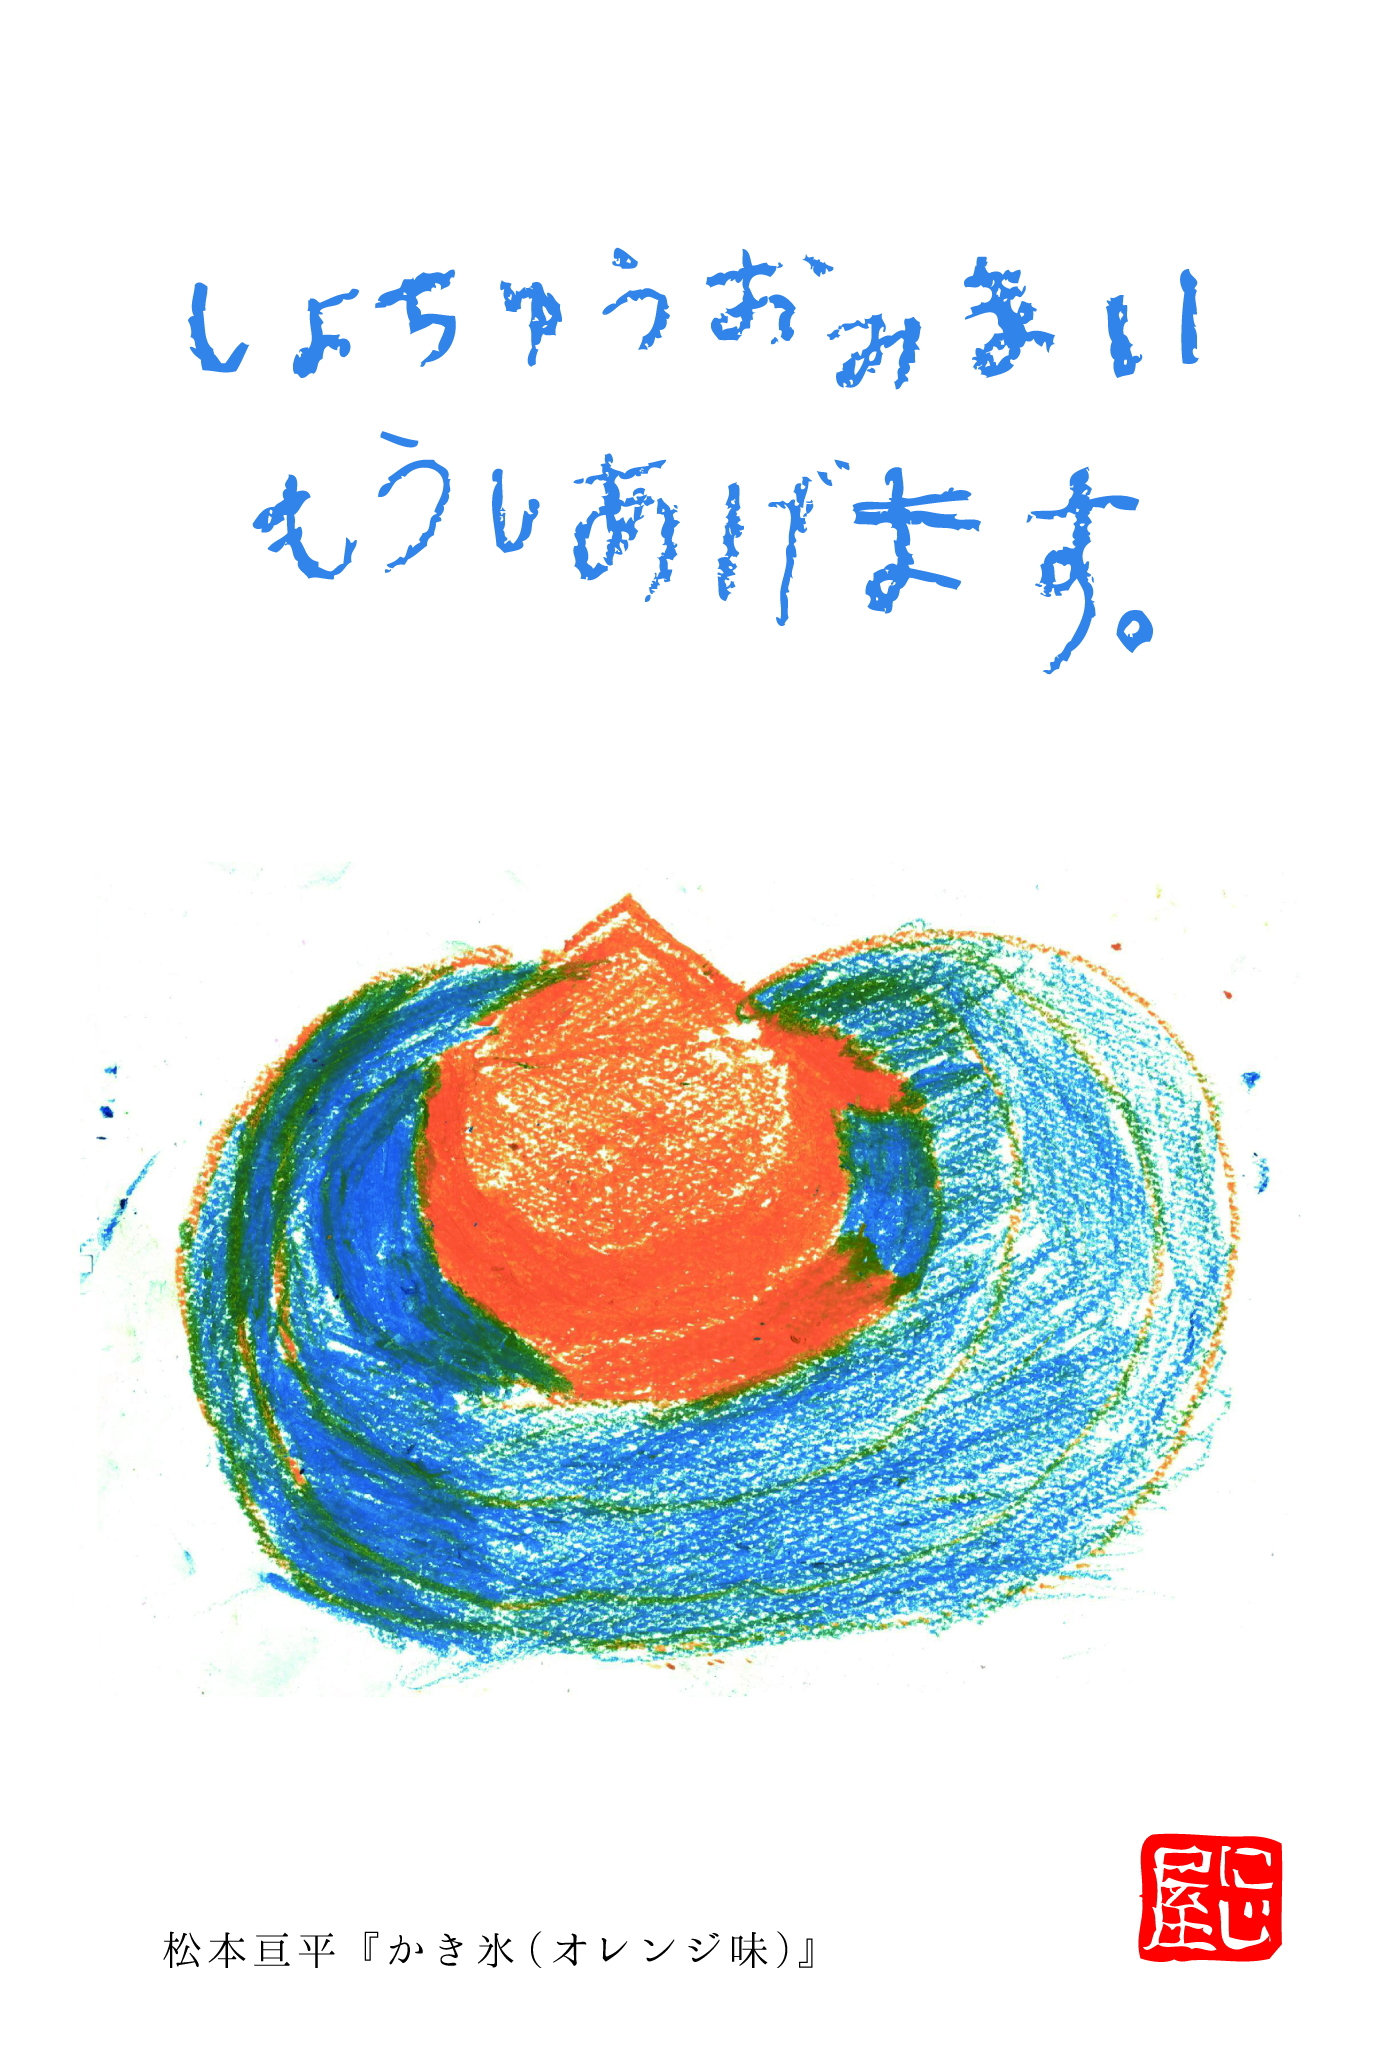 しょちゅうおみまい
もうしあげます。
松本亘平『かき氷(オレンジ味)』